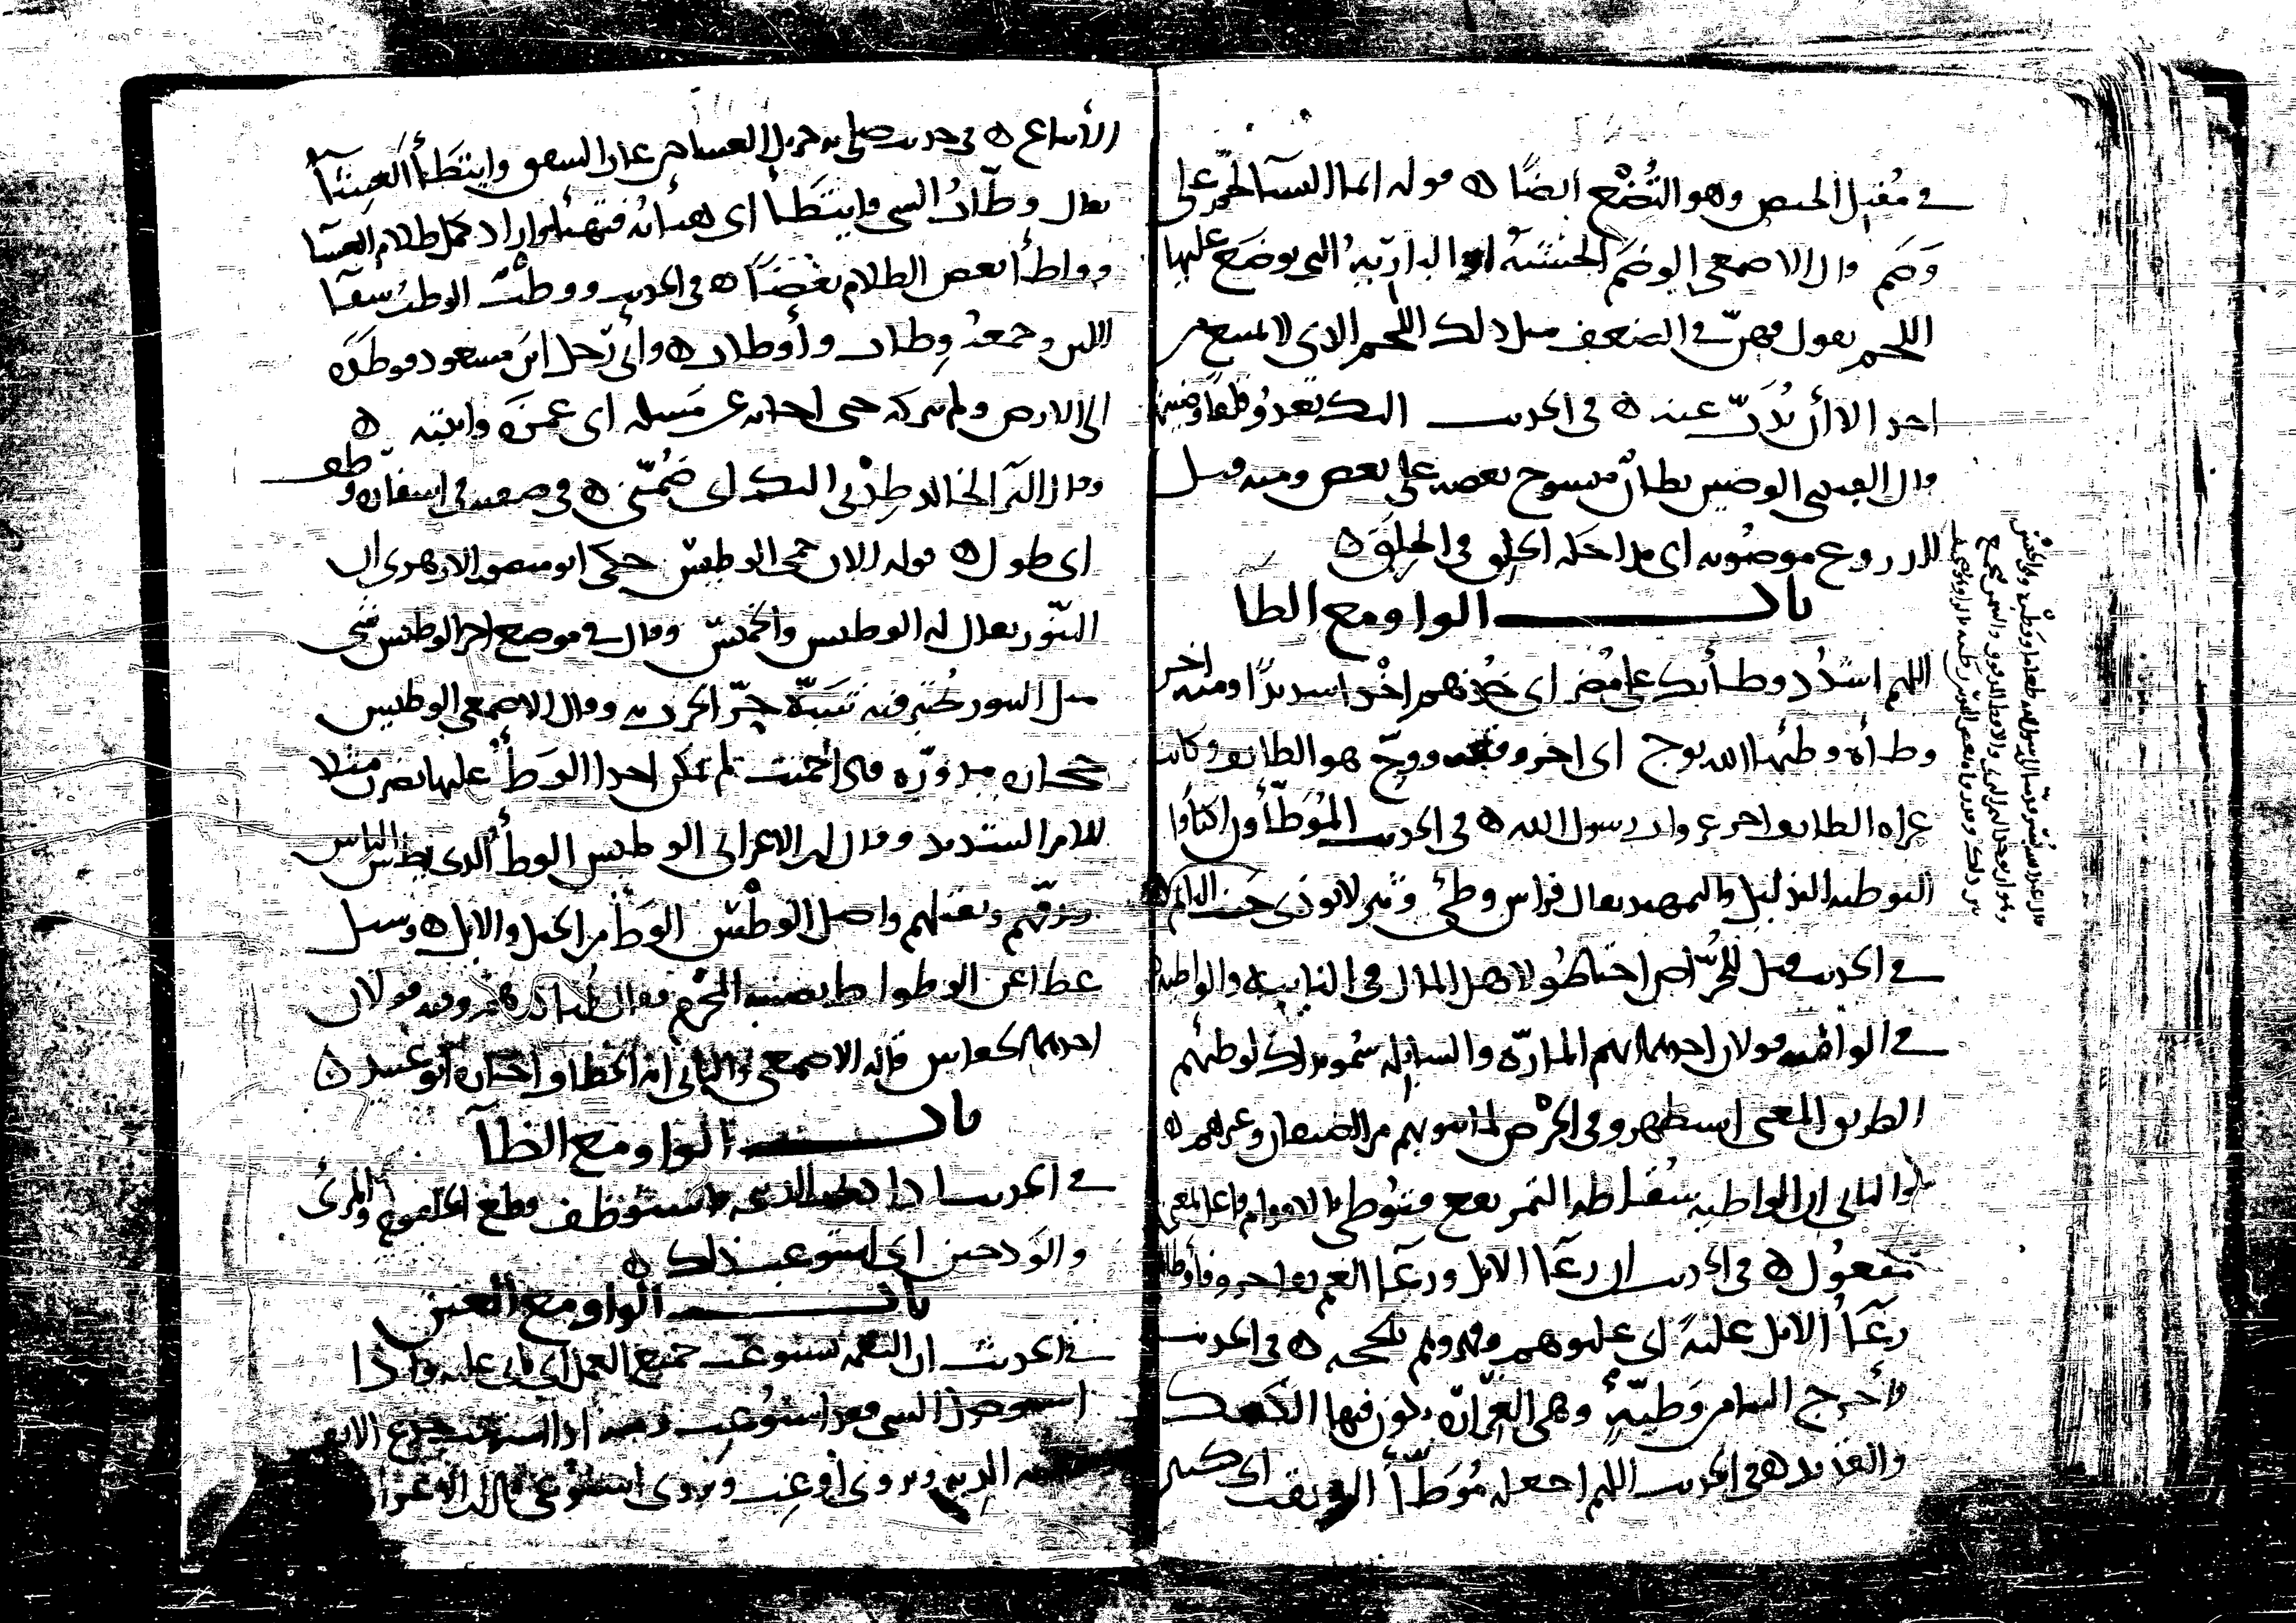 في مقتبل الحيض وهو التُّضُع أيضًا ه قوله انما النسآ لحم على
وَضَم قال الاصمعي الوضَم الخشبة او البارية التي يوضع عليها
اللحم يقول فهن في الضعف مثل ذلك اللحم الذي لا يمتنع من
احد الا أن يُذَبّ عنه ه في الحديث اليك تعدو قلقا وضينها
قال القتبي الوضين بطان منسوج بعضه على بعض ومنه قيل
للدروع موضونه اي مداخلة الحلق في الحلق ه
باب الواو مع الطا
اللهم اشدُد وطأتك على مُضر اي خذهم اخذا شديدًا ومنه اخر
وطأة وطئها الله بوج اي اخر وقعة ووجّ هو الطائف وكانت
غزاه الطائف اخر غزوات رسول الله ه في الحديث المُوَطَّأون اكنافا
التوطئه التذليل والتمهيد يقال فراش وطيّ وثير لا يوذي جنب النائم ه
في الحديث قيل للخُرّاص احتاطُوا لاهل المال في النايبه والواطئه
في الواطئه قولان احدهما انهم المارّة والسابلة سُمُوا بذلك لوطئهم
الطريق المعنى استظهروا في الخرْص لما ينوبهم من الضيفان وغيرهم ه
والثاني ان الواطيه سُقاطه التمر يقع فيُوطي بالاقدام فاعل بمعنى
مفعُول ه في الحديث ان رِعَآ الابل ورِعَآ الغنم تفاخروا فأوطأ
رِعَآ الابل غلبَةً اي غلبوهم وقهروهم بالحجه ه في الحديث
فأخرج الينا من وَطيّةٍ وهي الغِرارة يكون فيها الكعك
والقديد ه في الحديث اللهم اجعله مُوَطَّأَ العقب اي كثير
الأتباع ه في حديث صلى به جبريل العشا حين غاب الشفق وايتَطَأَ العِشآ
يقال وطّأتُ الشي فايتَطَأ اي هيأته فتهيأ واراد كمل ظلام العشا
وواطأ بعض الظلام بعضًا ه في الحديث ووطْبُ الوطب سِقآ
اللبن وجمعه وِطاب وأوطاب ه وأتي رجل ابن مسعود فوطَدَه
الى الارض ولم يتركه حتى اجابه عن مسله اي غمزَه واثبته ه
وقال البَرآ لخالد طِدْني اليك اي ضُمّني ه في صفته في اشفاره وطف
اي طول ه قوله الان حمي الوطيس حكى ابو منصور الازهري ان
التنّور يقال له الوطيس والخميس وقال في موضع اخر الوطيس شي
مثل التنور يُختبز فيه شبّه حَرّ الحرب به وقال الاصمعي الوطيس
حجاره مدوّره فاذا أُحميت لم يمكن احدا الوَطأ عليها يضرب مثلا
للامر الشديد وقال ابن الاعرابي الوطيس الوطأ الذي يطس الناس
ويدقّهم ويقتلهم واصل الوطْس الوَطأ من الخيل والابل ه وسيل
عطا عن الوطواط يصيبه المحْرِم فقال ثلثا درهم وفيه قولان
احدهما الخفاش قاله الاصمعي والثاني انه الخطاف واختاره أبو عُبيد ه
باب الواو مع الظآ
في الحديث اذا ذبحت الذبيحة فاستوظف قطع الحلقوم والمريُ
والوَدجين اي استوعب ذلك ه
باب الواو مع العين
في الحديث ان النعمة تستوعب جميع العمل اي تاتي عليه واذا
استوصل الشي فقد استُوعِب ومنه اذا استوعب جدع الانف
الدية ويروى أُوعِب ويُروى استُوعي قال ابن الاعرا